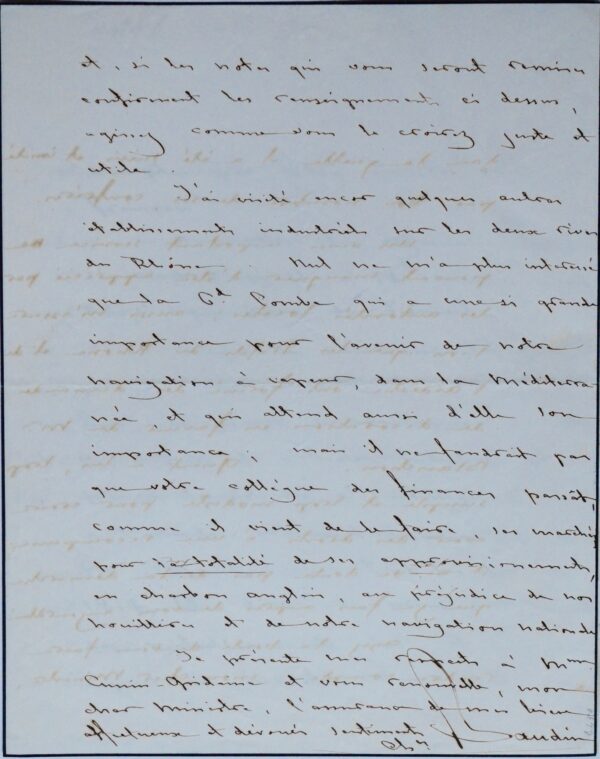 et, si les notes qui vous seront remises
confirment les renseignements ci dessus,
agissez comme vous le croirez juste et
utile.
J'ai visité encor quelques autres
établissements industriels sur les deux rives
du Rhône. Nul ne m'a plus intéressé
que la Gd Combe qui a une si grande
importance pour l'avenir de notre
navigation à vapeur, dans la Méditerra
née, et qui attend aussi d'elle son
importance; mais il ne faudrait pas
que votre collègue des finances passât,
comme il vient de le faire ses marchés
pour la totalité de ses approvisionnements,
en charbon anglais, au préjudice de nos
houillères et de notre navigation nationale
Je présente mes respects à Mme
Cunin-Gridaine et vous renouvelle, mon
cher Ministre, l'assurance de mes bien
affectueux et dévoués sentiments
Ch. Baudin